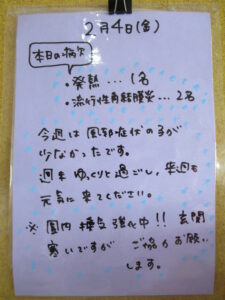 2月4日(金)
本日の病欠
・発熱…1名
・流行性角結膜炎…2名
今週は風邪症状の子が
少なかったです。
週末ゆっくりと過ごし、来週も
元気に来てください。
※園内換気強化中!! 玄関
寒いですが ご協力お願い
します。